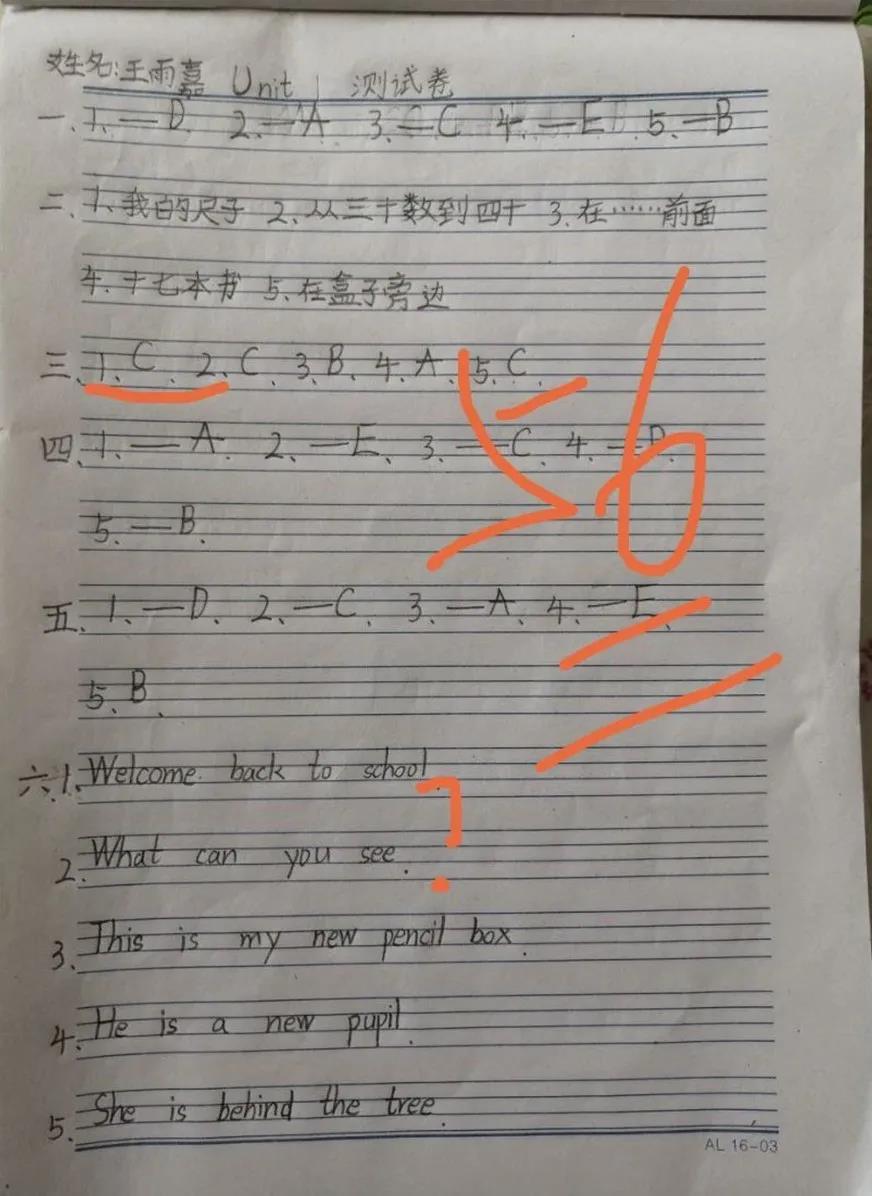 姓名:王雨嘉 Unit 1 测试卷
一、1.—D 2.—A 3.—C 4.—E 5.—B
二、1、我的尺子 2、从三十数到四十 3.在……前面
4.十七本书 5、在盒子旁边
三、1、C、2、C、3、B、4、A、5、C、
四、1、—A、2、—E、3、—C、4、—D.
5、—B、
五、1、—D、2、—C、3、—A、4、—E、
5、B、
六、1、Welcome back to school.
?
2.What can you see.
3、This is my new pencil box.
4、He is a new pupil.
5、She is behind the tree.
AL 16-03